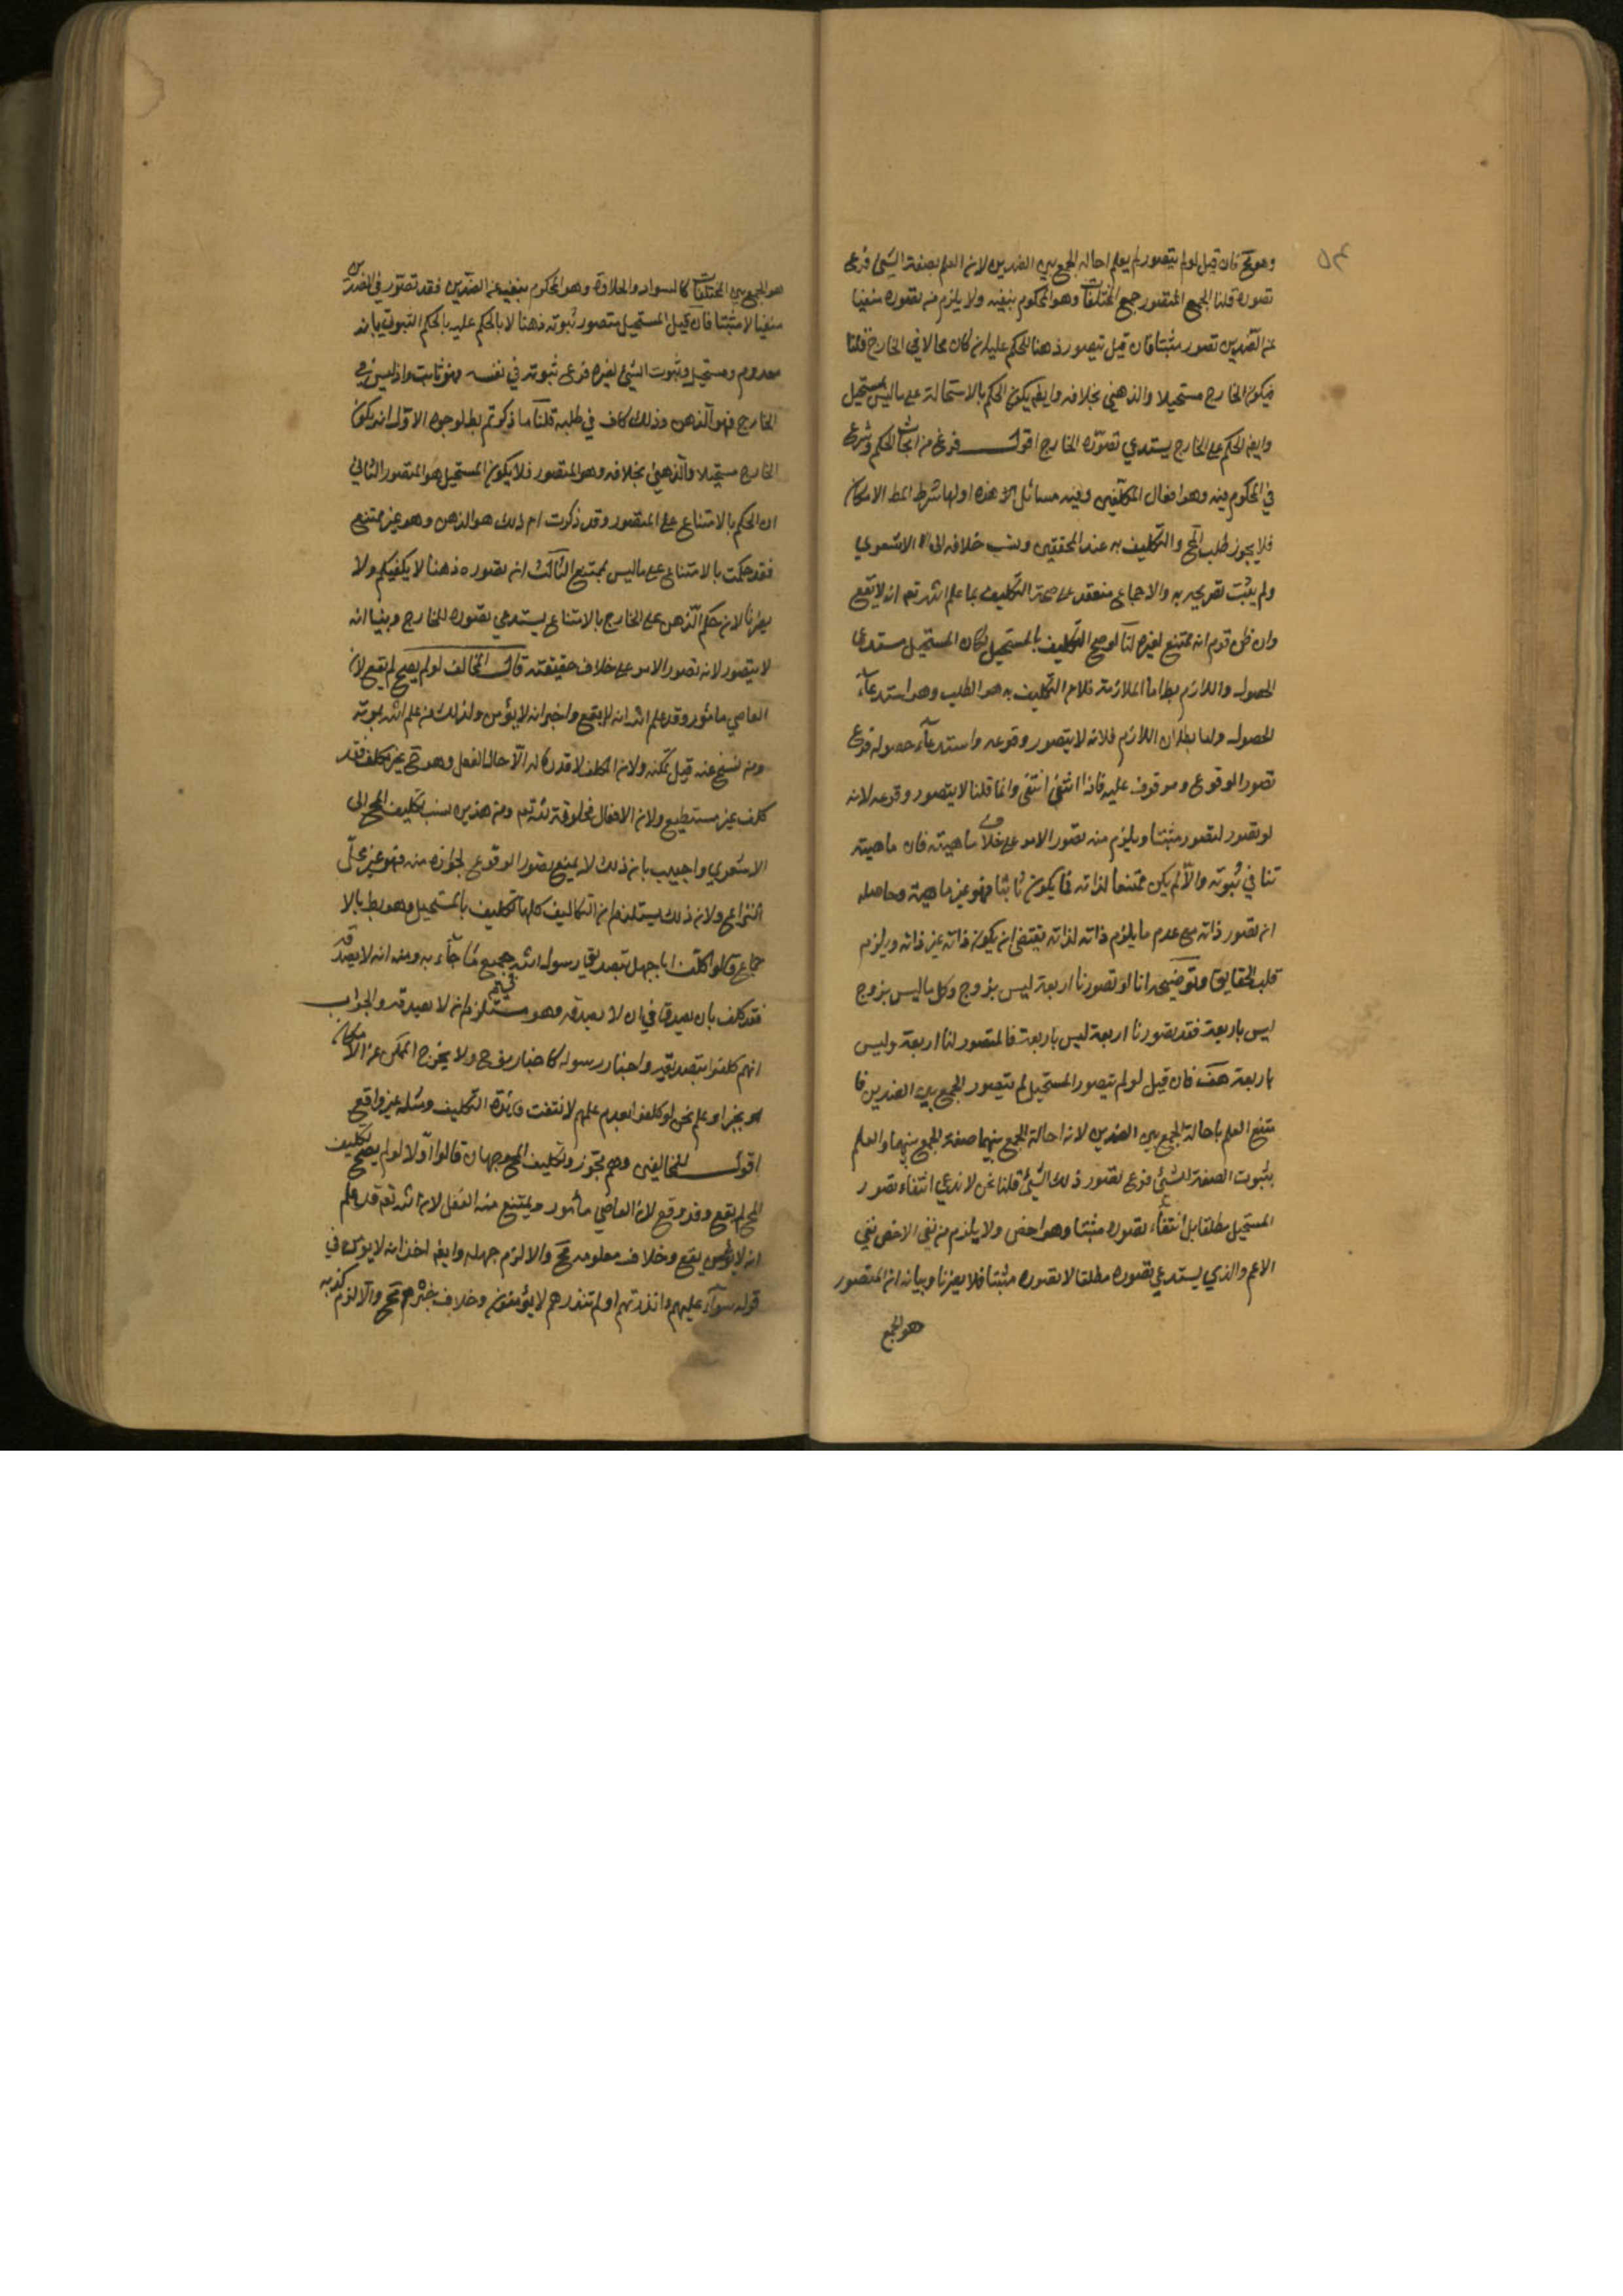 ٥٤
وهو مح فان قيل لو لم يتصور لم يعلم احالة الجمع بين الضدين لان العلم بصفة الشيئ فرع
تصوره قلنا الجمع المتصور جمع المختلفات وهو المحكوم بنفيه ولا يلزم من تصوره منفيا
عن الضدين تصور مثبتا فان قيل يتصور ذهنا للحكم عليه ان كان محالا في الخارج قلنا
فيكون الخارج مستحيلا والذهني بخلافه وايضا يكون الحكم بالاستحالة على ما ليس بمستحيل
وايضا الحكم على الخارج يستدعي تصوره للخارج اقول فرغ من ابحاث الحكم وشرع
في المحكوم فيه وهو افعال المكلفين وفيه مسائل هذه اولها شرط المط الامكان
فلا يجوز طلب المح والتكليف به عند المحققين ونسب خلافه الى الاشعري
ولم يثبت تصريحه به والاجماع منعقد على صحة التكليف بما علم الله تع انه لا يقع
وان ظن قوم انه ممتنع لغيره لنا لو صح التكليف بالمستحيل لكان المستحيل مستدعى
الحصول واللازم بط اما الملازمة فلان التكليف به هو الطلب وهو استدعاء
الحصول واما بطلان اللازم فلانه لا يتصور وقوعه واستدعاء حصوله فرع
تصور الوقوع وموقوف عليه فاذا انتفى انتفى وانما قلنا لا يتصور وقوعه لانه
لو تصور لتصور مثبتا ويلزم منه تصور الامر على خلاف ماهيته فان ماهيته
تنافي ثبوته والا لم يكن ممتنعا لذاته فما يكون ثابتا فهو غير ماهيته وحاصله
ان تصور ذاته مع عدم ما يلزم ذاته لذاته يقتضي ان يكون ذاته غير ذاته ويلزم
قلب الحقايق وتوضيحه انا لو تصورنا اربعة ليس بزوج وكل ما ليس بزوج
ليس باربعة فقد تصورنا اربعة ليس باربعة فالمتصور لنا اربعة وليس
باربعة هف فان قيل لو لم يتصور المستحيل لم يتصور الجمع بين الضدين فا
متنع العلم باحالة الجمع بين الضدين لان احالة الجمع بينهما صفة الجمع بينهما والعلم
بثبوت الصفة للشيئ فرع تصور ذلك الشيئ قلنا نحن لا ندعي انتفاء تصور
المستحيل مطلقا بل انتفاء تصوره مثبتا وهو اخص ولا يلزم من نفي الاخص نفي
الاعم والذي يستدعي تصوره مطلقا لا تصوره مثبتا فلا يضرنا وبيانه ان المتصور
هو الجمع
هو الجمع بين المختلفات كالسواد والحلاوة وهو المحكوم بنفيه عن الضدين فقد تصور في الضدين
منفيا لا مثبتا فان قيل المستحيل متصور ثبوته ذهنا لانا بالحكم عليه بالحكم الثبوتي بانه
معدوم ومستحيل وثبوت الشيئ لغيره فرع ثبوته في نفسه فهو ثابت واذ ليس في
الخارج فهو الذهن وذلك كاف في طلبه قلنا ما ذكرتم بط لوجوه الاول انه يكون
الخارج مستحيلا والذهني بخلافه وهو المتصور فلا يكون المستحيل هو المتصور الثاني
ان الحكم بالامتناع على المتصور وقد ذكرت ان ذلك هو الذهن وهو غير ممتنع
فقد حكمت بالامتناع على ما ليس بممتنع الثالث ان تصوره ذهنا لا يكفيكم ولا
يضرنا لان حكم الذهن على الخارج بالامتناع يستدعي تصوره للخارج وبينا انه
لا يتصور لانه تصور الامر على خلاف حقيقته قال المخالف لو لم يصح لم يقع لان
العاصي مامور وقد علم الله انه لا يقع واخبر انه لا يؤمن وكذلك من علم الله بموته
ومن نسخ عنه قبل تمكنه ولان المكلف لا قدرة له الا حال الفعل وهو ح غير مكلف فقد
كلف غير مستطيع ولان الافعال مخلوقة لله تع ومن هذين نسب تكليف المح الى
الاشعري واجيب بان ذلك لا يمنع تصور الوقوع لجوازه منه فهو غير محل
النزاع ولان ذلك يستلزم ان التكاليف كلها تكليف بالمستحيل وهو بط بالا
جماع قالوا كلف ابا جهل تصديق رسول الله في جميع ما جاء به ومنه انه لا يصدقه
فقد كلف بان يصدقه في ان لا يصدقه وهو مستلزم ان لا يصدقه والجواب
انهم كلفوا بتصديقه واخبار رسوله كاخبار نوح ولا يخرج الممكن عن الامكان
بخبر او علم نعم لو كلفوا بعد علمهم لانتفت فائدة التكليف ومثله غير واقع
اقول للمخالفين وهم مجوزو تكليف المح وجهان قالوا اولا لو لم يصح تكليف
المح لم يقع وقد وقع لان العاصي مأمور ويمتنع منه الفعل لان الله تع قد علم
انه لا يقع وخلاف معلومه مح والا لزم جهله وايضا اخبر انه لا يؤمن في
قوله سواء عليهم ءانذرتهم ام لم تنذرهم لا يؤمنون وخلاف خبره مح والا لزم كذبه